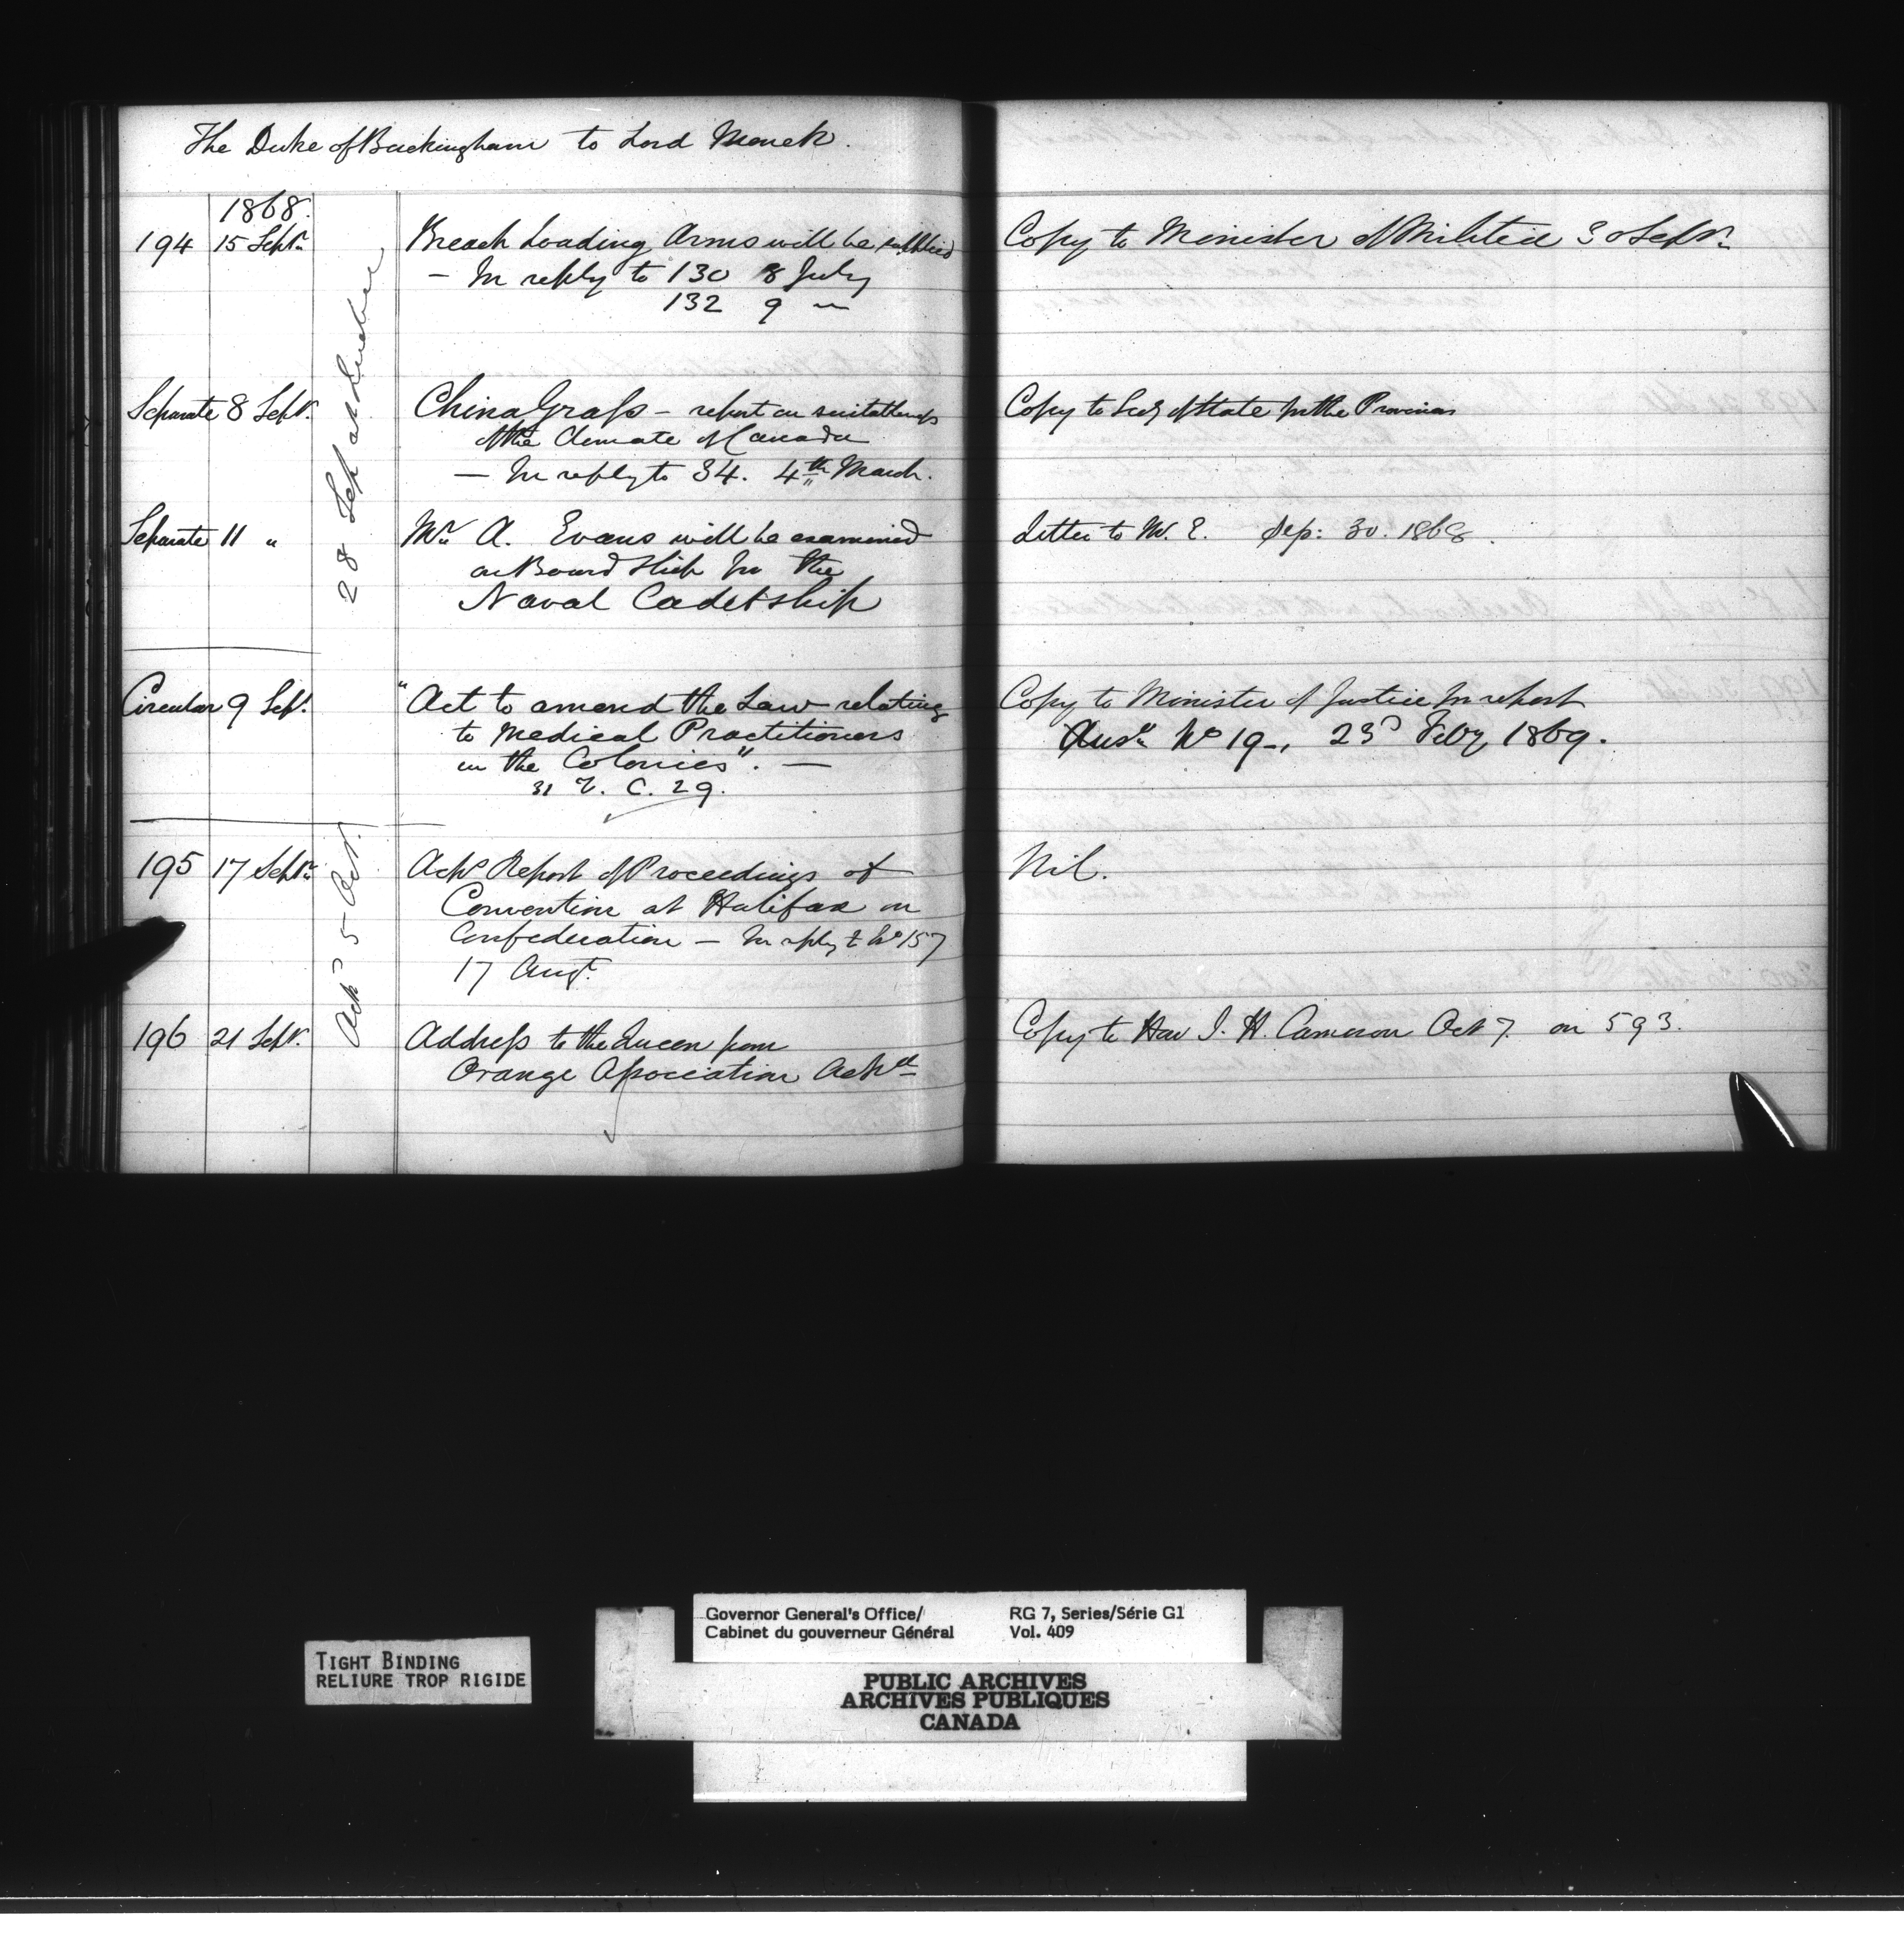 The Duke of Buckingham to Lord Monck.
1868.
194 15 Septr. Breach Loading Arms will be supplied
— In reply to 130 8 July
132 9 "
Copy to Minister of Militia 30 Septr.
28 Sept
Separate 8 Septr. China Grass – report on suitableness
of the Climate of Canada
— In reply to 34. 4th March.
Copy to Secy of State for the Provinces
Separate 11 " Mr. A. Evans will be examined
on Board Ship for the
Naval Cadetship
Letter to Mr. E. Sep: 30. 1868.
Circular 9 Sept. "Act to amend the Law relating
to Medical Practitioners
in the Colonies". —
31 V. C. 29.
Copy to Minister of Justice for report
Ansd. No 19–, 23d Feby 1869.
Ackd 5 Oct.
195 17 Septr. Ackg Report of Proceedings of
Convention at Halifax on
Confederation – In reply to No 157
17 Augt.
Nil.
196 21 Septr. Address to the Queen from
Orange Association Ackd
Copy to Hon J. H. Cameron Oct 7. on 593.
TIGHT BINDING
RELIURE TROP RIGIDE
Governor General's Office/
Cabinet du gouverneur Général
RG 7, Series/Série G1
Vol. 409
PUBLIC ARCHIVES
ARCHIVES PUBLIQUES
CANADA